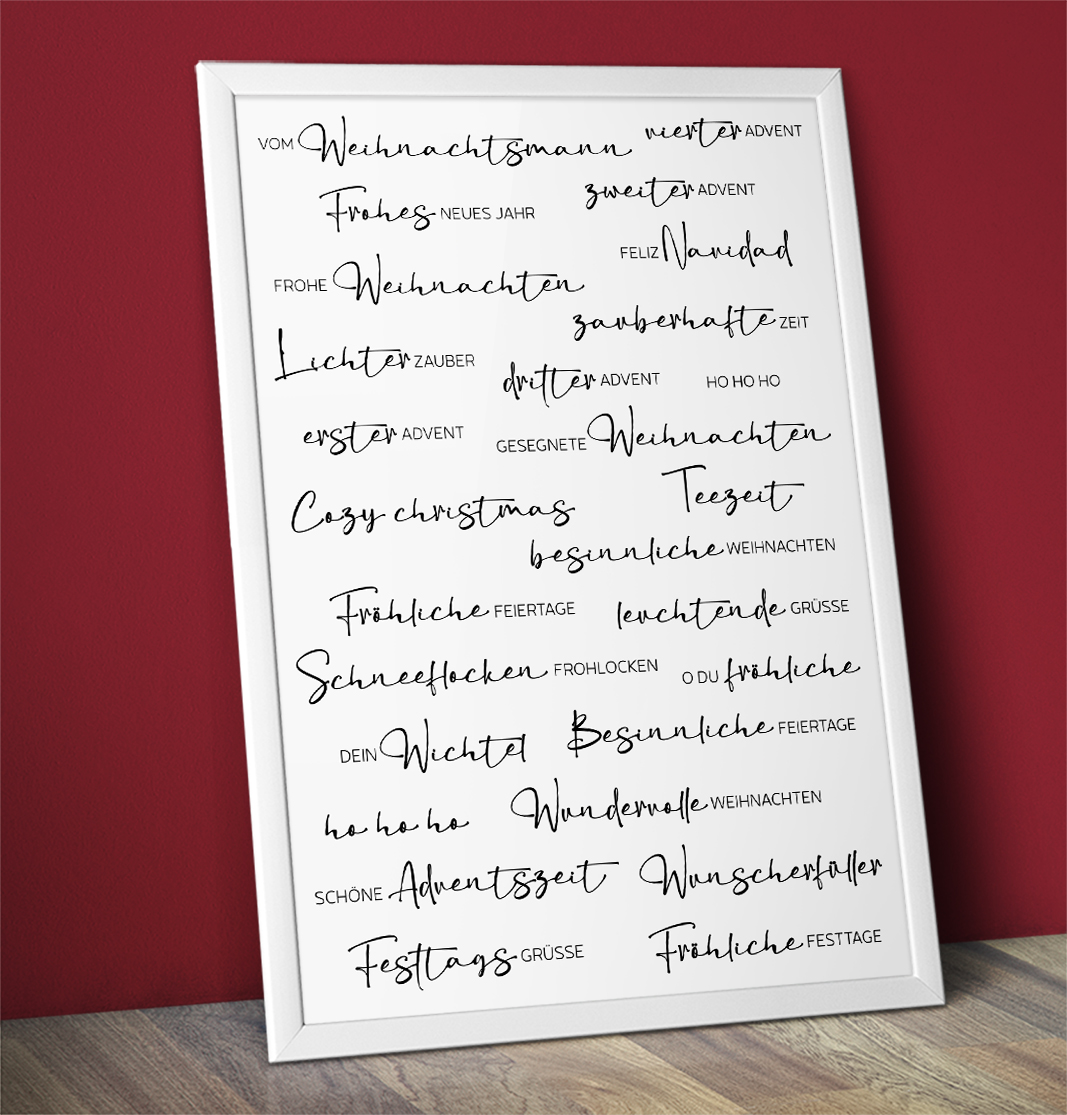 VOM Weihnachtsmann
vierter ADVENT
Frohes NEUES JAHR
zweiter ADVENT
FELIZ Navidad
FROHE Weihnachten
zauberhafte ZEIT
Lichter ZAUBER
dritter ADVENT
HO HO HO
erster ADVENT
GESEGNETE Weihnachten
Cozy christmas
Teezeit
besinnliche WEIHNACHTEN
Fröhliche FEIERTAGE
leuchtende GRÜSSE
Schneeflocken FROHLOCKEN
O DU fröhliche
DEIN Wichtel
Besinnliche FEIERTAGE
ho ho ho
Wundervolle WEIHNACHTEN
SCHÖNE Adventszeit
Wunscherfüller
Festtags GRÜSSE
Fröhliche FESTTAGE